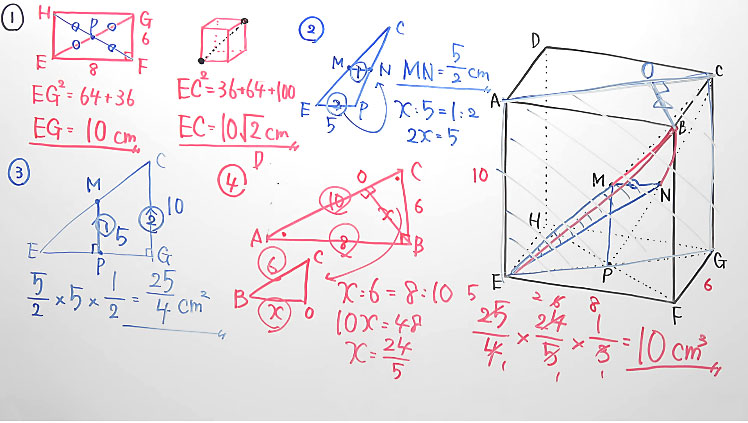 ①
H G
P
6
E 8 F
EG² = 64+36
EG = 10 cm
EC² = 36+64+100
EC = 10√2 cm
②
C
M ① N
E ② P
5
MN = 5/2 cm
x:5 = 1:2
2x = 5
③
C
M
10
① 5 ②
E P G
5/2 × 5 × 1/2 = 25/4 cm²
④
D
O C
⑩ x 6
A ⑧ B
⑥ C
B ⓧ O
x:6 = 8:10
10x = 48
x = 24/5
D O C
A B
10
M N
H
P G
E 6
F
5 2 6 8
25/4 × 24/5 × 1/3 = 10 cm³
1 1 1